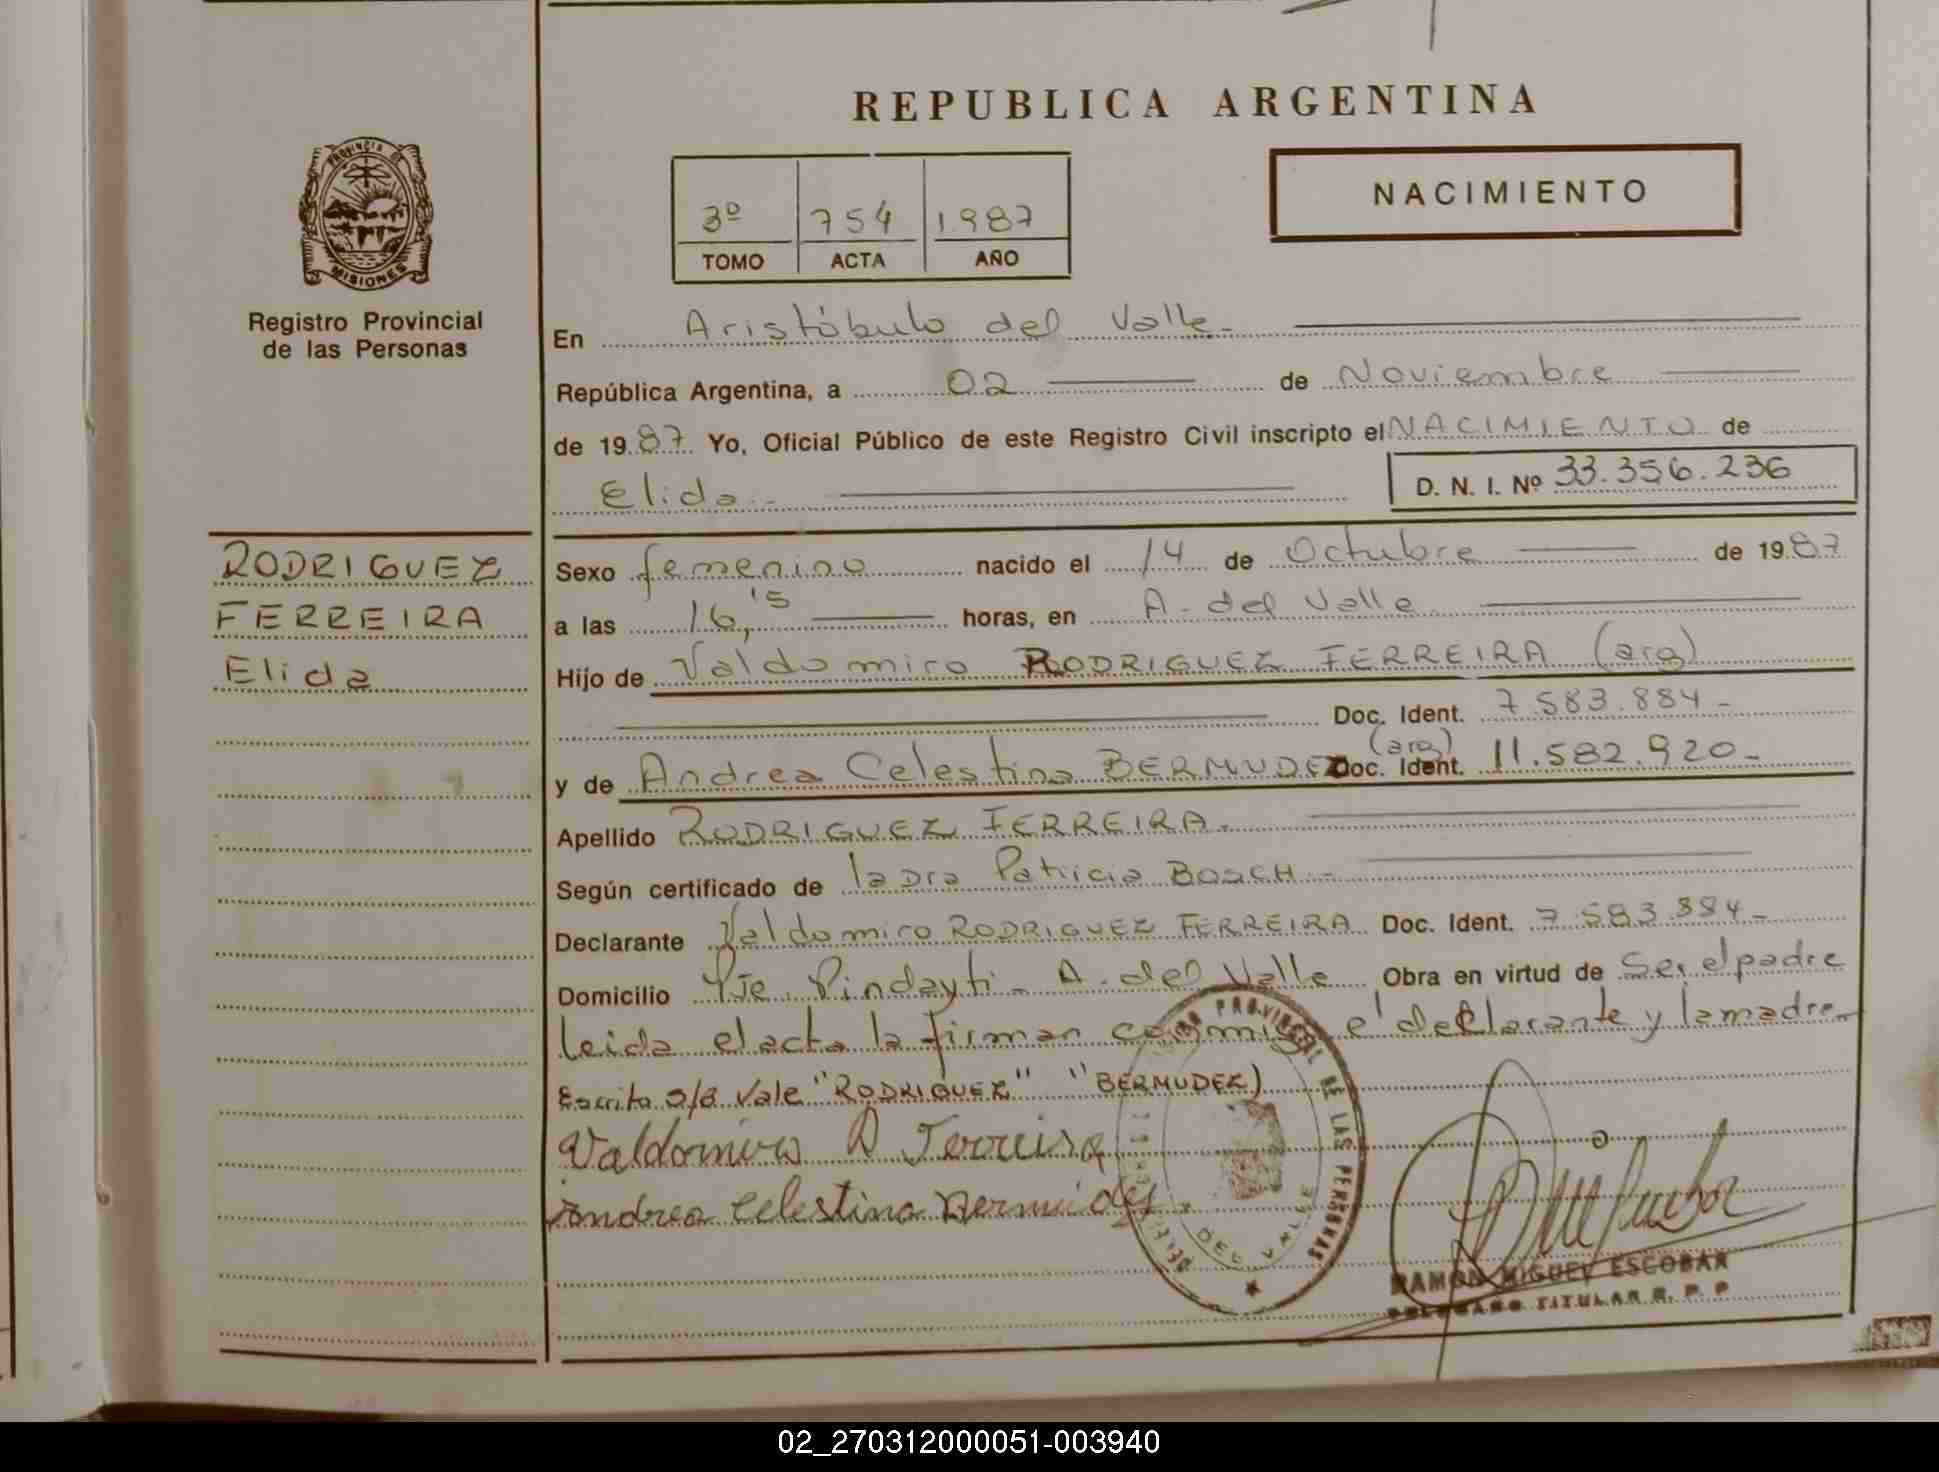 REPUBLICA ARGENTINA
PROVINCIA DE
MISIONES
Registro Provincial
de las Personas
3º 754 1.987
TOMO ACTA AÑO
NACIMIENTO
En Aristóbulo del Valle.-
República Argentina, a 02 de Noviembre
de 1987 Yo, Oficial Público de este Registro Civil inscripto el NACIMIENTO de
Elida.-
D. N. I. Nº 33.356.236
RODRIGUEZ
FERREIRA
Elida
Sexo femenino nacido el 14 de Octubre de 1987
a las 16,15 horas, en A. del Valle
Hijo de Valdomiro RODRIGUEZ FERREIRA (arg)
Doc. Ident. 7.583.884-
y de Andrea Celestina BERMUDEZ (arg) Doc. Ident. 11.582.920-
Apellido RODRIGUEZ FERREIRA.-
Según certificado de la Dra Patricia BOSCH.-
Declarante Valdomiro RODRIGUEZ FERREIRA Doc. Ident. 7.583.884-
Domicilio Pje. Pindayti- A. del Valle Obra en virtud de Ser el padre
leida el acta la firman conmigo el declarante y la madre-
Escrito s/b Vale "RODRIGUEZ" "BERMUDEZ)
Valdomiro R Ferreira
Andrea Celestina Bermudez
PROVINCIAL DE LAS PERSONAS
DEL VALLE
RAMON MIGUEL ESCOBAR
DELEGADO TITULAR R. P. P
02_270312000051-003940